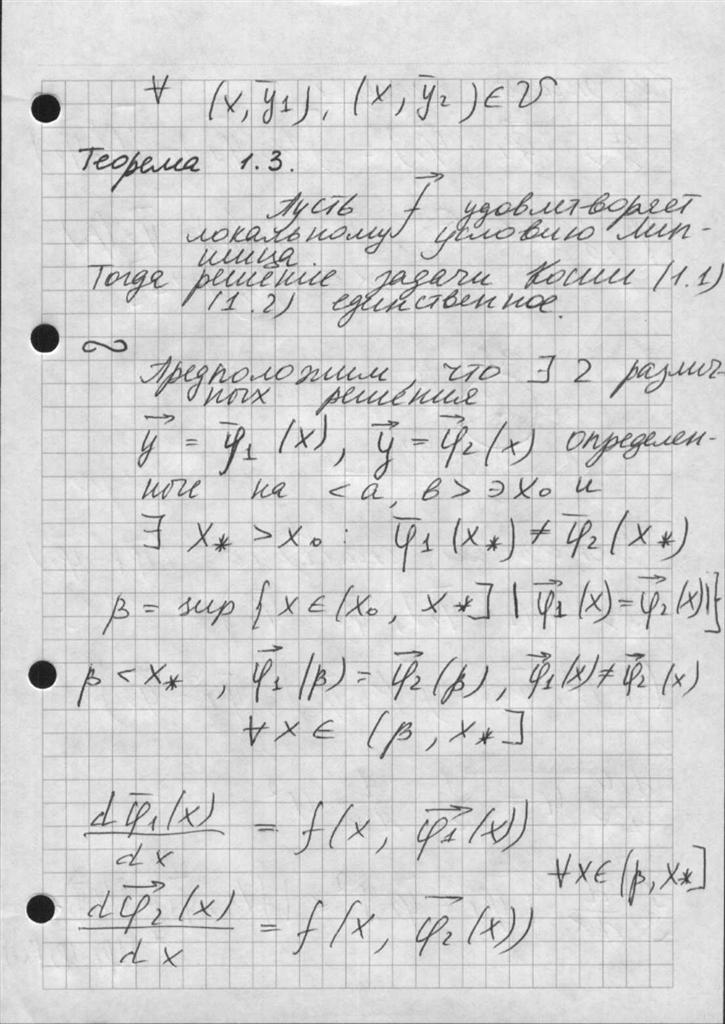 ∀ (x, ȳ1), (x, ȳ2) ∈ V
Теорема 1.3.
Пусть f⃗ удовлетворяет
локальному условию Лип-
шица.
Тогда решение задачи Коши (1.1)
(1.2) единственное.
∾
Предположим, что ∃ 2 различ-
ных решения
y⃗ = φ̄1 (x), y⃗ = φ⃗2 (x) определен-
ные на <a, b> ∋ x₀ и
∃ x* > x₀ : φ̄1 (x*) ≠ φ̄2 (x*)
β = sup { x ∈ (x₀, x*] | φ⃗1 (x) = φ⃗2 (x)|}
β < x* , φ⃗1 (β) = φ⃗2 (β), φ⃗1 (x) ≠ φ⃗2 (x)
∀ x ∈ (β, x*]
dφ̄1 (x)/dx = f(x, φ⃗1 (x))
∀x ∈ (β, x*]
dφ⃗2 (x)/dx = f(x, φ⃗2 (x))